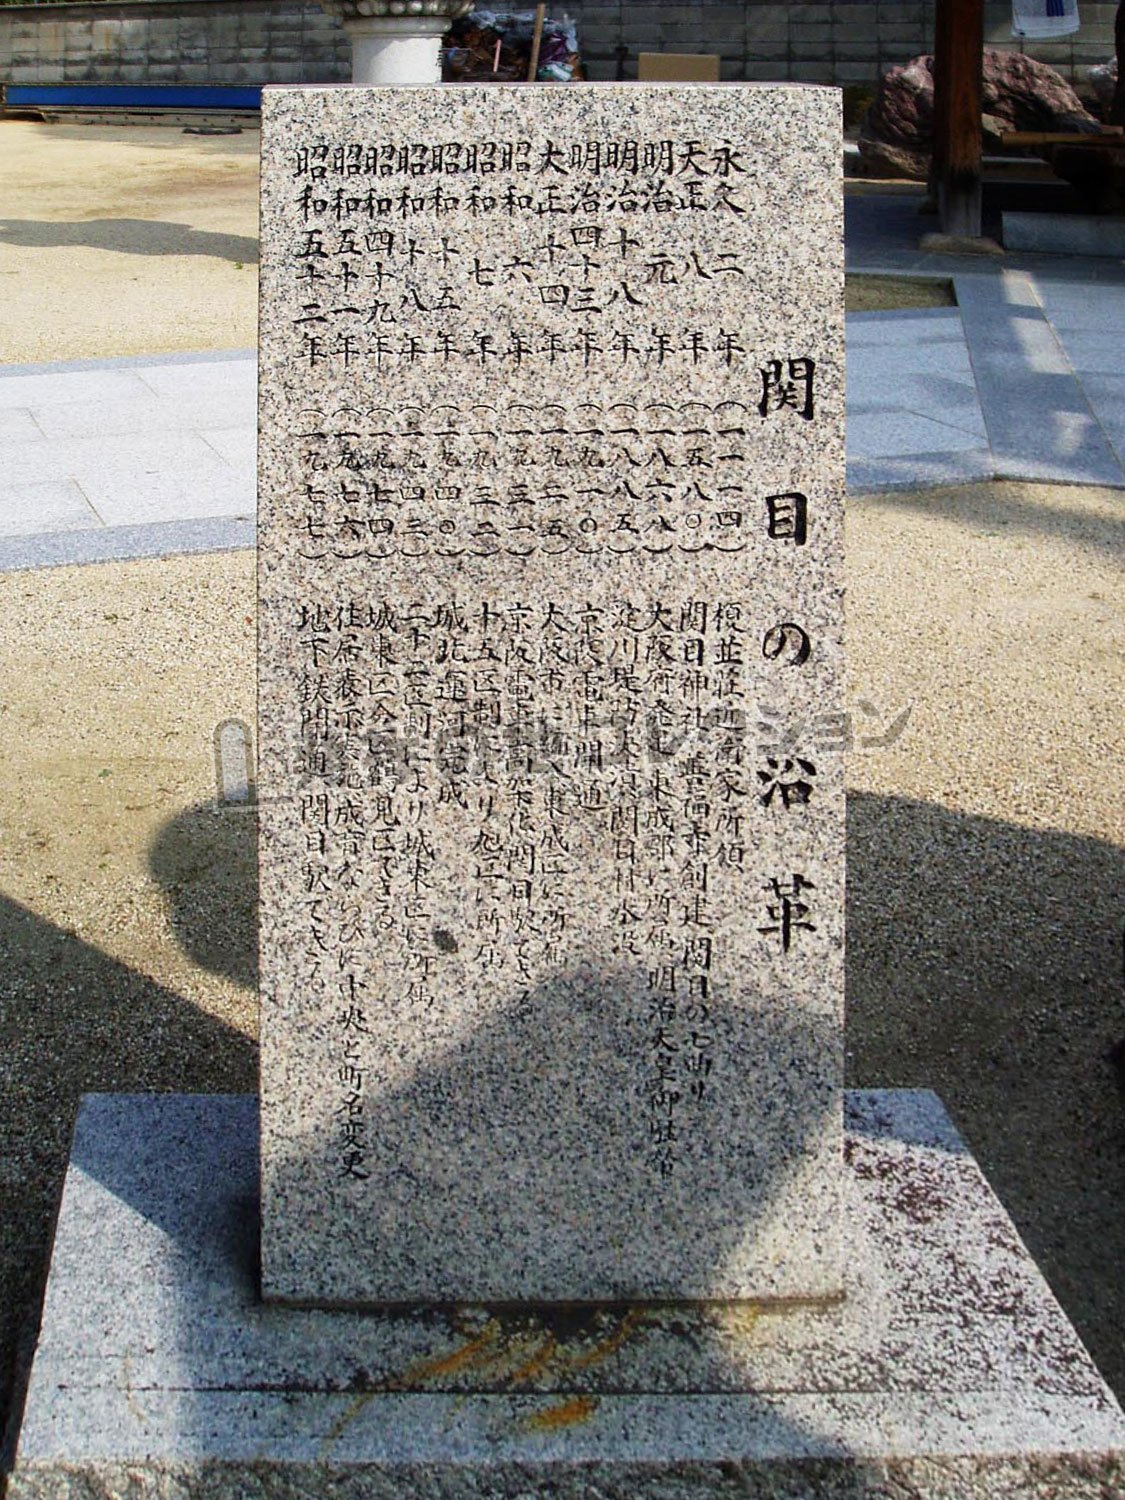 関目の沿革
永久二年(一一一四)榎並荘近衛家所領
天正八年(一五八〇)関目神社 創建関目の七曲り
明治元年(一八六八)大阪府発足東成郡に所属、明治天皇御駐輦
明治十八年(一八八五)淀川堤防決潰関目村水没
明治四十三年(一九一〇)京阪電車開通
大正十四年(一九二五)大阪市に編入東成区に所属
昭和六年(一九三一)京阪電車高架化関目駅できる
昭和七年(一九三二)十五区制により旭区に所属
昭和十五年(一九四〇)城北運河完成
昭和十八年(一九四三)二十二区制により城東区に所属
昭和四十九年(一九七四)城東区分区鶴見区できる
昭和五十一年(一九七六)住居表示実施成育ならびに中央と町名変更
昭和五十二年(一九七七)地下鉄開通関目駅できる
コレクション